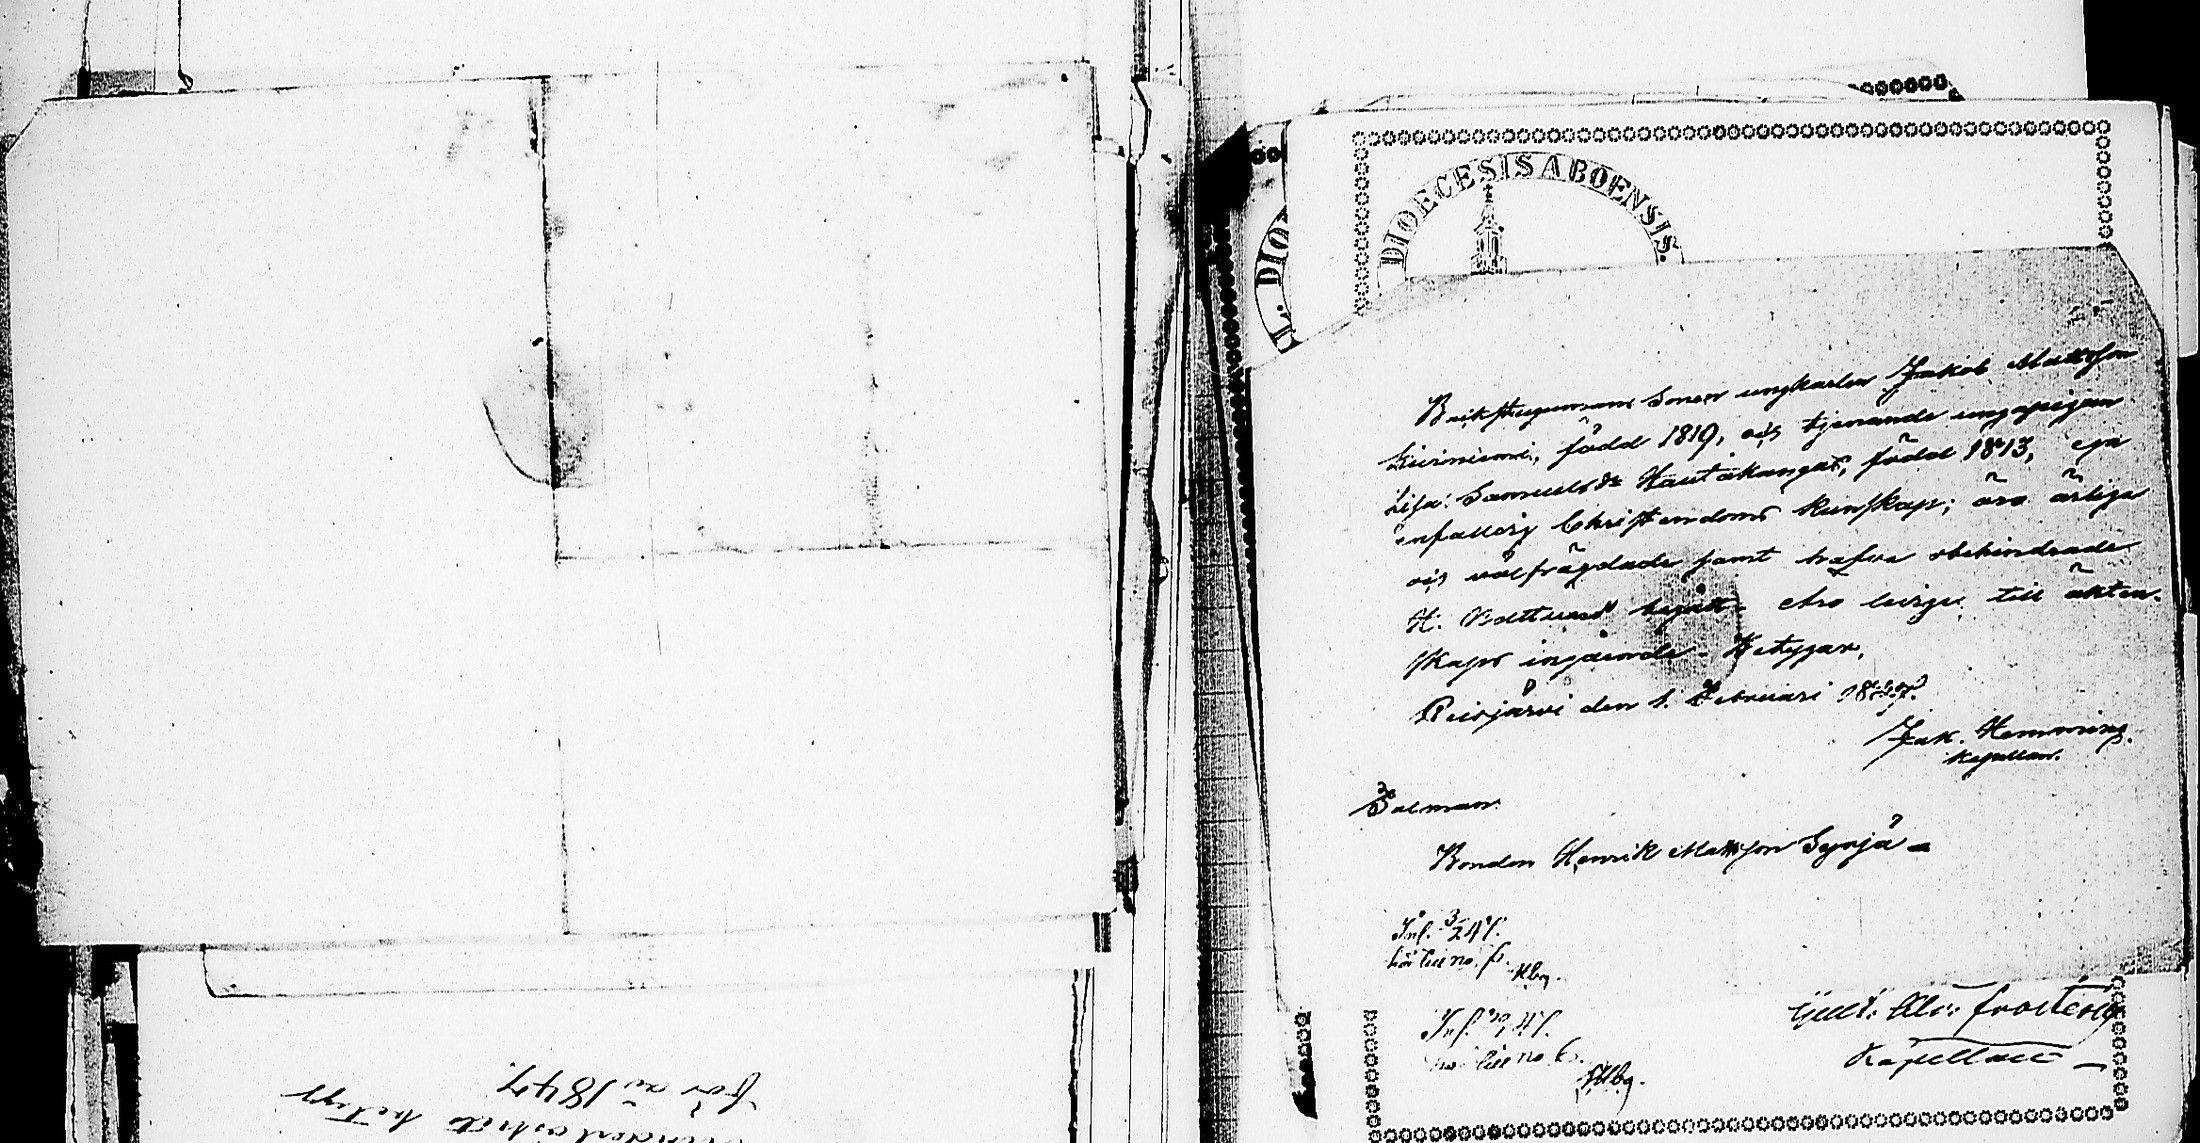 DIOECESIS ABOENSIS.
L. DIO
Backstugumans Sonen ungkarlen Jakob Mattsson
Kiviniemi, född 1819, och tjenande ungapigan
Lisa Samuelsdr Hautakangas, född 1813, ega
enfallig Christendoms kunskap; äro ärliga
och välfrägdade samt hafva obehindrade
H. Nattvard begått. Äro lediga till äkten-
skaps ingående. Betygar,
Reisjärvi den 1. Februari 1847.
Jak. Hemming.
Kapellan.
Talman
Bonden Henrik Mattsson Syrjä
Inf. 3/2 47.
hör till no. 6.
Hbg.
Inf. 47.
till no 6.
Hbg.
Kapellan
för år 1847